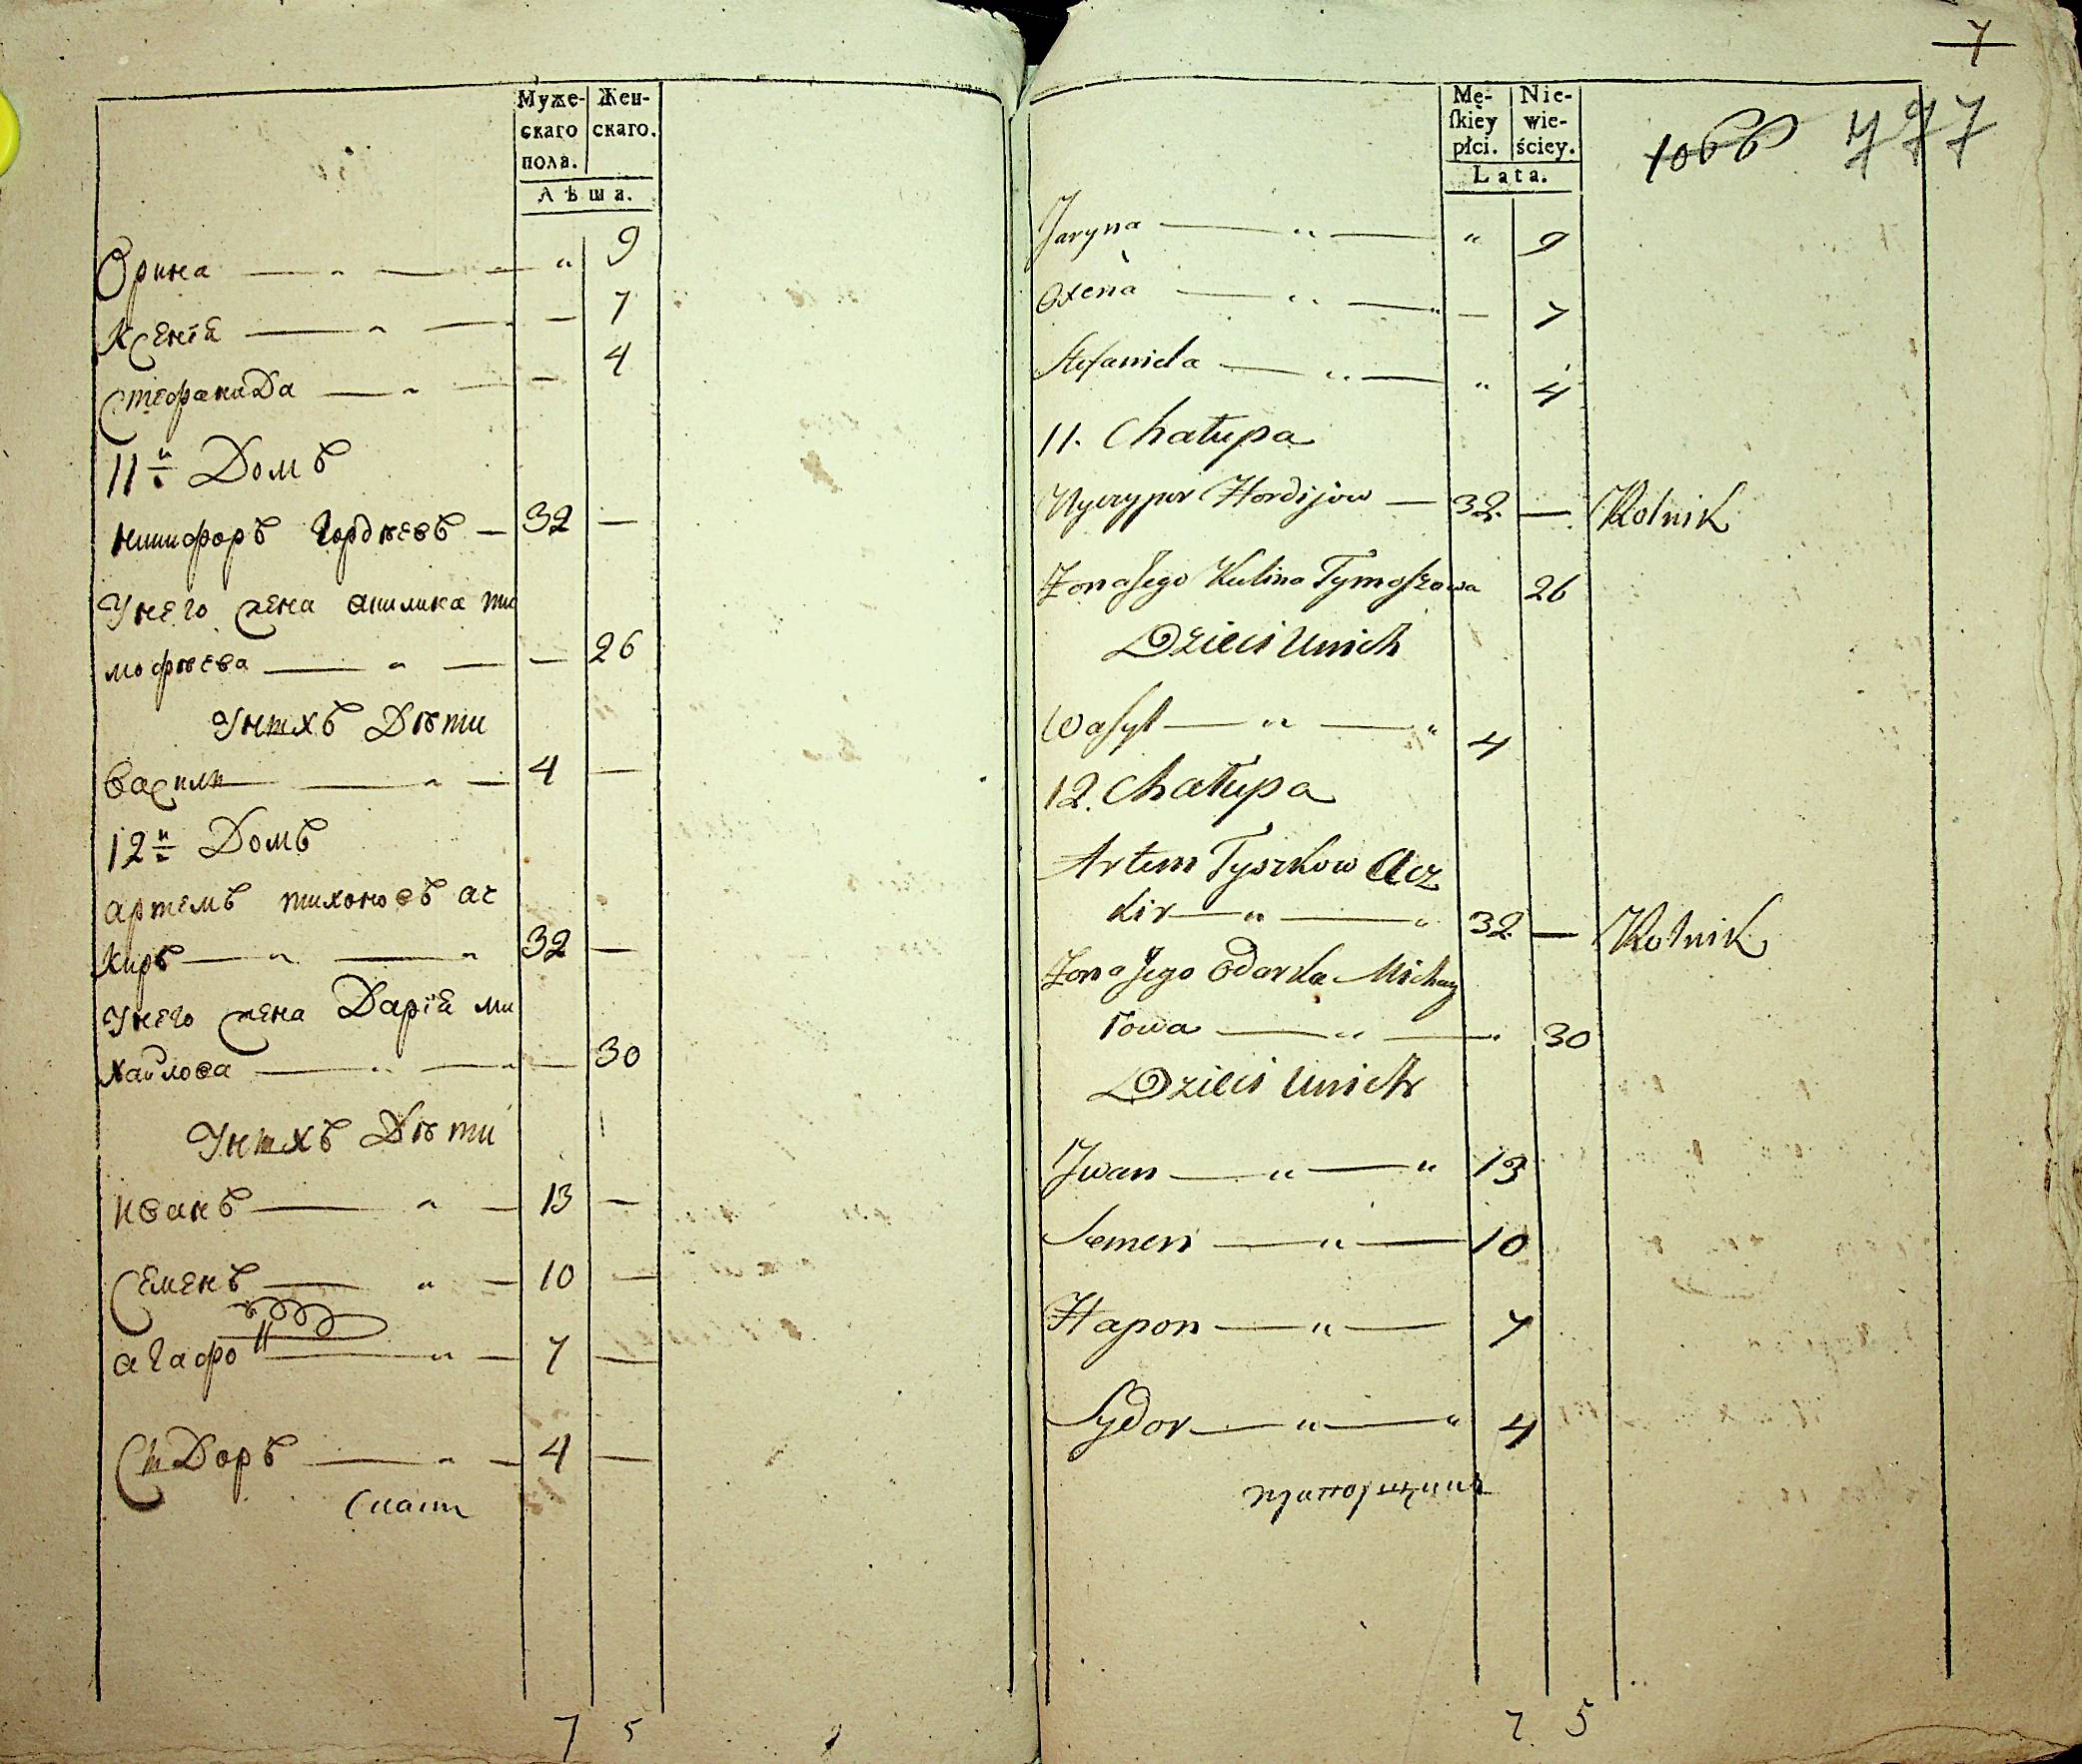 Муже-
скаго
пола.
Жен-
скаго.
Лѣта.
Орина — „ — „ 9
Ксенія — „ — — 7
Стефанида — „ — — 4
11й Домъ
Никифоръ Гордѣевъ — 32 —
Унего жена Акилина Ти
мофѣева — „ — — 26
Унихъ Дѣти
Васили — — „ — 4 —
12й Домъ
Артемъ Тихоновъ Ас
киръ — „ — „ 32 —
Унего жена Дарія Ми
хайлова — „ — — 30
Унихъ Дѣти
Иванъ — „ — 13 —
Семенъ — „ — 10 —
Агафонъ — „ — 7 —
Сидоръ — „ — 4 —
7 5
7
777
Mę-
ſkiey
płci.
Nie-
wie-
ściey.
Lata.
Jaryna — „ — „ 9
Oxena — „ — — 7
Stefanida — „ — „ 4
11. Chałupa
Nyczypor Hordijow — 32. — Rolnik
Żona Jego Kulina Tymoszowa 26
Dzieci Unich
Wasyl — „ — „ 4
12. Chałupa
Artem Tyszkow Acz
kir — „ — „ 32 — Rolnik
Żona Jego Odarka Michay
łowa — „ — „ 30
Dzieci Unich
Jwan — „ — „ 13
Semen — „ — 10
Hapon — „ — 7
Sydor — „ — „ 4
7 5